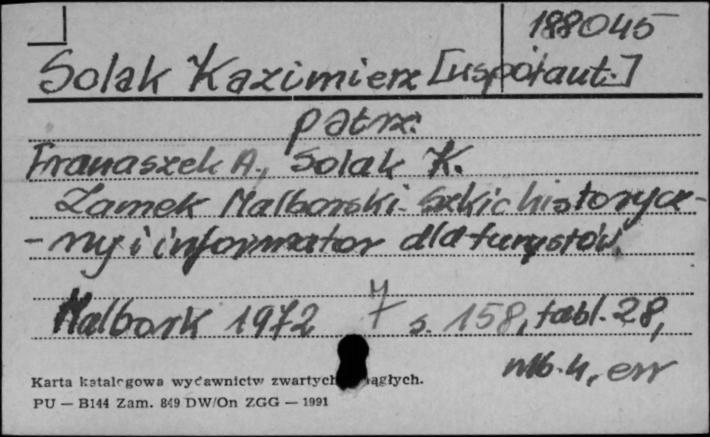 188045
Solak Kazimierz [współaut.]
patrz:
Franaszek A., Solak K.
Zamek Malborski. Szkic historycz-
- ny i informator dla turystów
Malbork 1972 s. 158, tabl. 28,
nlb. 4, err
Karta katalogowa wydawnictw zwartych ciągłych.
PU — B144 Zam. 849 DW/On ZGG — 1991